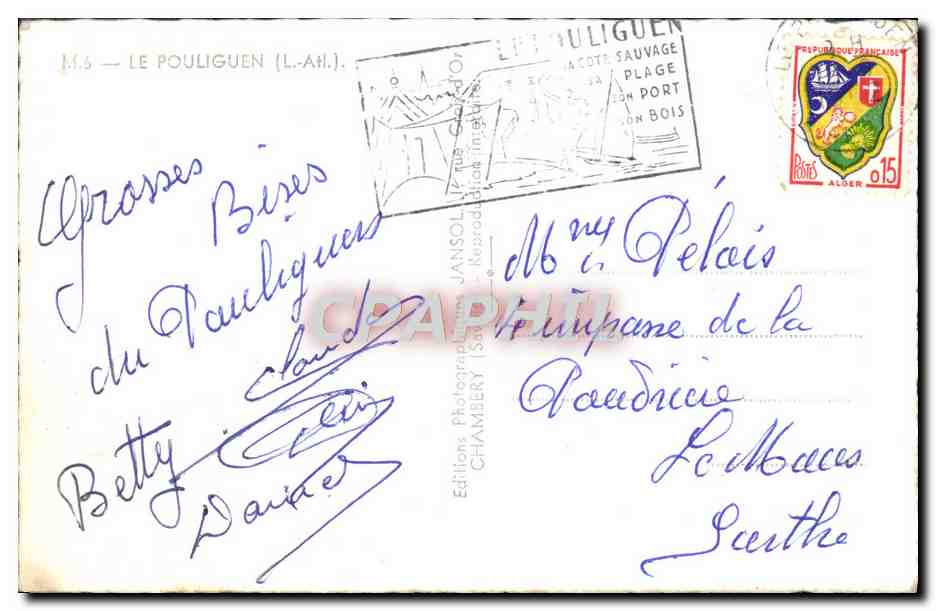 M.6 — LE POULIGUEN (L.-Atl.).
LE POULIGUEN
SA COTE SAUVAGE
SA PLAGE
SON PORT
SON BOIS
REPUBLIQUE FRANÇAISE
POSTES
ALGER
0.15
Grosses
Bises
du Pouliguen
Claude
Betty
Daniel
Editions Photographiques JANSOL, rue Croix-d'Or
CHAMBERY (Savoie) - Reproduction interdite
CPAPHIL
Pelois
4 impasse de la
Poudrière
Le Mans
Sarthe